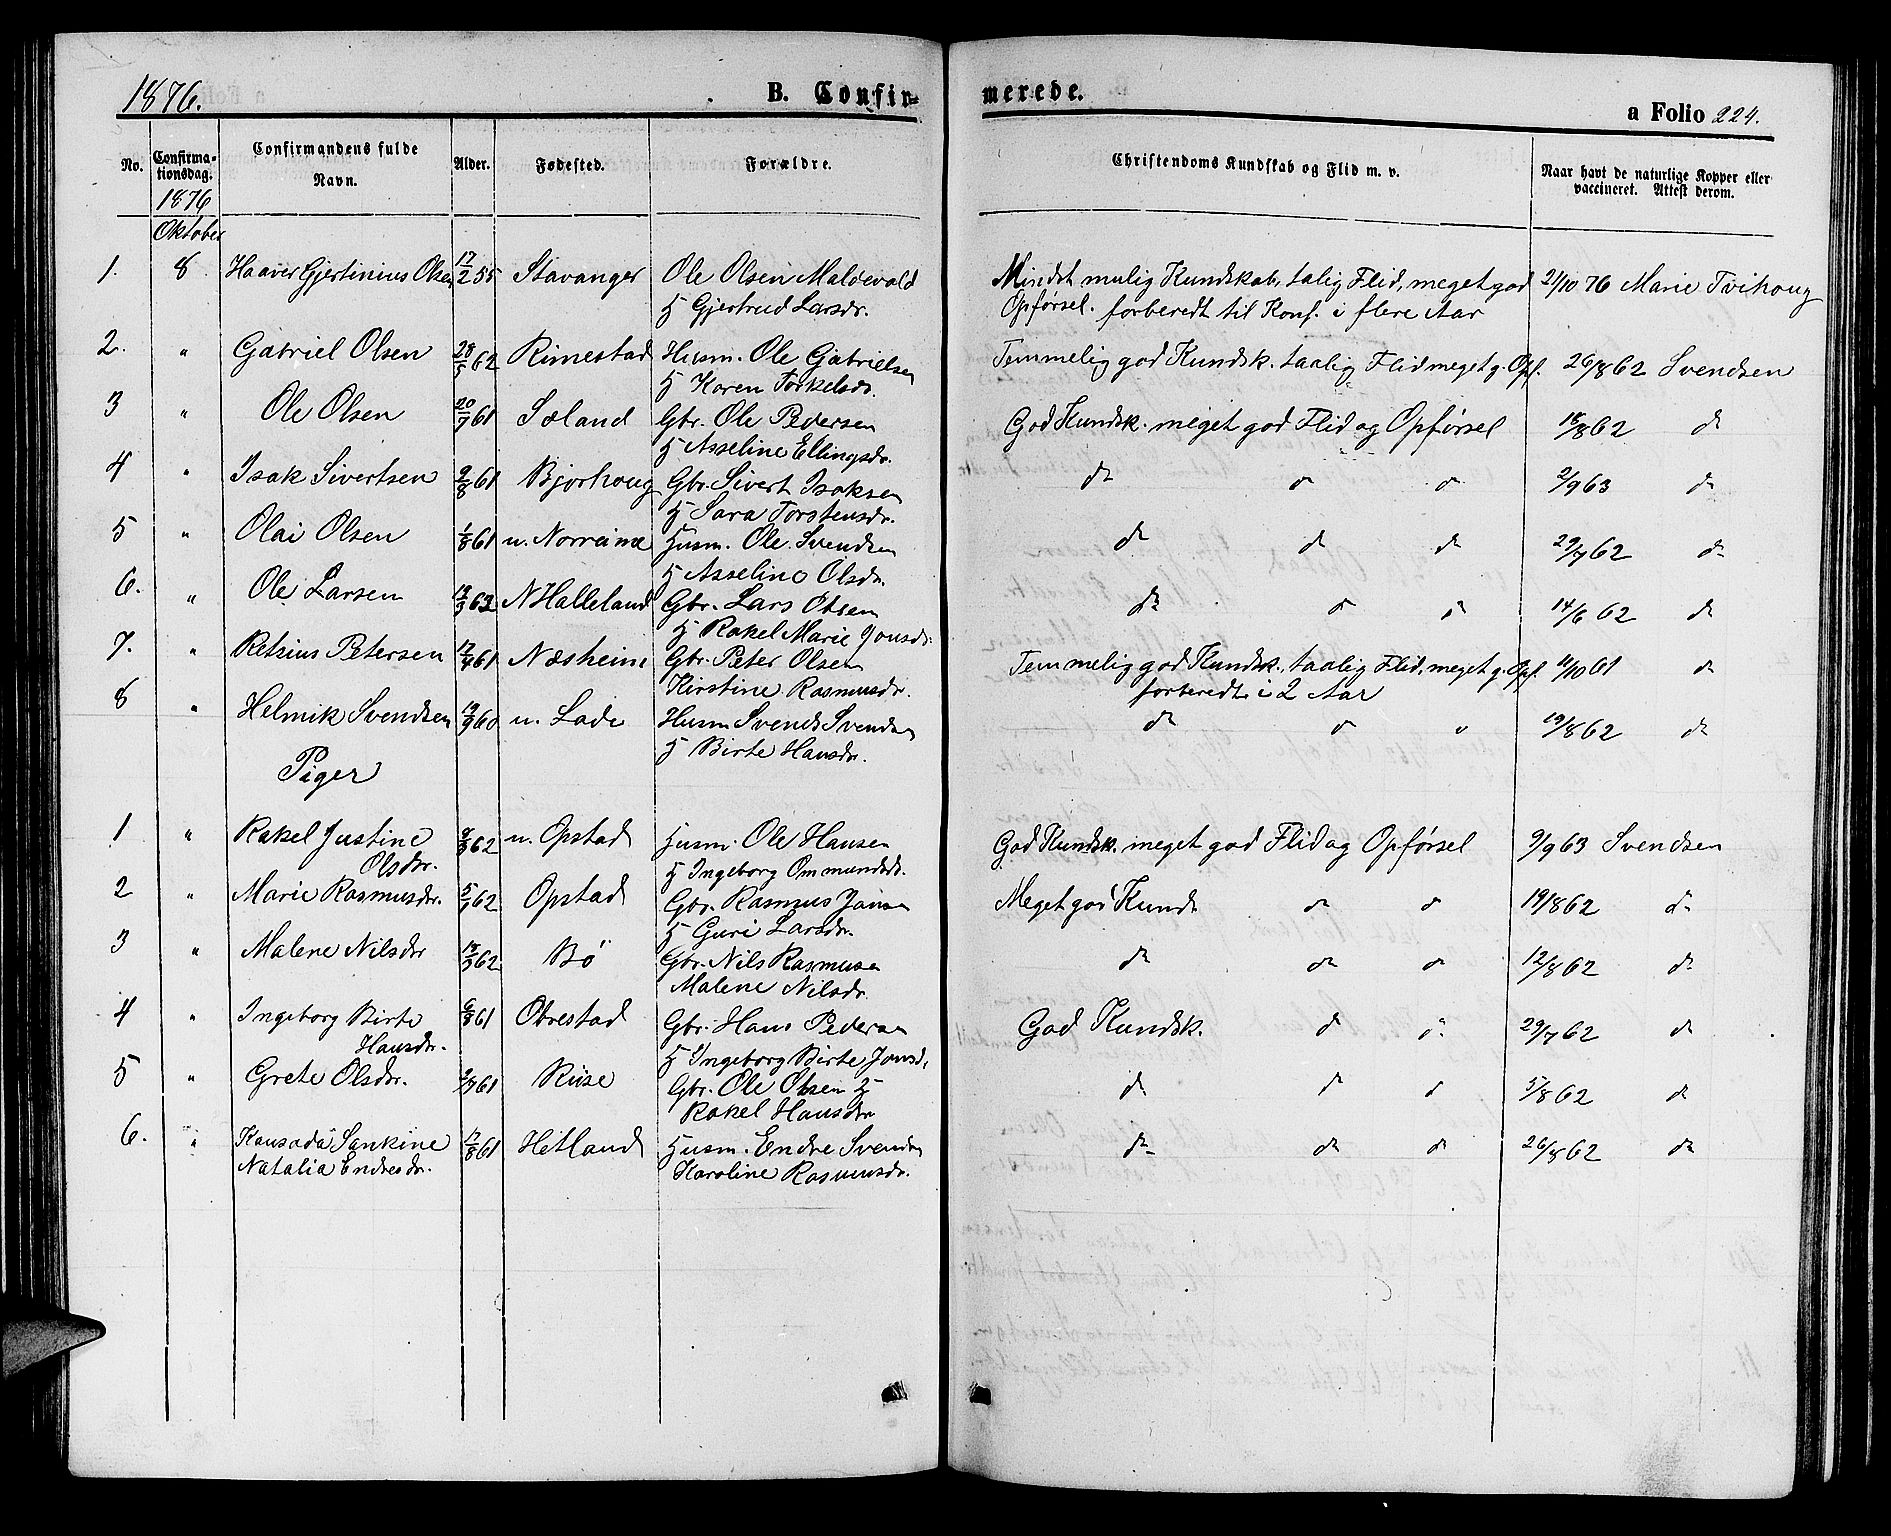 1876.
B. Confir-
merede.
a Folio 224.
No.
Confirma-
tionsdag.
1876
Oktober
Confirmandens fulde
Navn.
Alder.
Fødested.
Forældre.
Christendoms Kundskab og Flid m. v.
Naar havt de naturlige Kopper eller
vaccineret. Attest derom.
1. 8 Haaver Gjertinius Olsen 17/2 55 Stavanger Ole Olsen Maløevold Mindst mulig Kundskab, talig Flid, meget god 21/10 76 Marie Tvihoug
H Gjertrud Larsdr. Opførsel. forberedt til Konf. i flere Aar
2. " Gabriel Olsen 28/5 62 Rimestad Husm. Ole Gabrielsen Temmelig god Kundsk. taalig Flid meget g. Opf. 26/8 62 Svendsen
H Karen Torkelsdr.
3 " Ole Olsen 20/7 61 Sæland Gbr. Ole Pedersen God Kundsk. meget god Flid og Opførsel 18/8 62 d
H Asseline Ellingsdr.
4 " Isak Sivertsen 9/8 61 Bjorhoug Gbr. Sivert Isaksen do d d 2/9 63 d
H Sara Torstensdr.
5 " Olai Olsen 1/8 61 u. Norreime Husm. Ole Svendsen d d d 29/7 62 d
H Asseline Olsdr.
6. " Ole Larsen 13/3 62 N Halleland Gbr. Lars Olsen do d d 14/6 62 d
H Rakel Marie Jonsdr.
7. " Retsius Petersen 12/4 61 Næsheim Gbr. Peter Olsen Temmelig god Kundsk., taalig Flid, meget g. Opf. 11/10 61 d
Kirstine Rasmusdr. forberedt i 2 Aar
8 " Helmik Svendsen 19/9 60 u. Lade Husm Svend Svendsen do d d 19/8 62 d
H Birte Hansdr.
Piger
1 " Rakel Justine 8/3 62 u. Opstad Husm. Ole Hansen God Kundsk. meget god Flid og Opførsel 9/9 63 Svendsen
Olsdr. H Ingeborg Ommundsdr.
2 " Marie Rasmusdr. 5/7 62 Opstad Gbr. Rasmus Jansen Meget god Kunds d d 19/8 62 d
H Guri Larsdr.
3 " Malene Nilsdr 18/3 62 Bø Gbr. Nils Rasmusen do d d 12/8 62 d
Malene Nilsdr.
4 " Ingeborg Birte 6/8 61 Obrestad Gbr. Hans Pedersen God Kundsk. d d 29/7 62 d
Hansdr. H Ingeborg Birte Jonsd.
5 " Grete Olsdr. 2/7 61 Riise Gbr. Ole Olsen H d d d 5/8 62 d
Rakel Hansdr
6. " Kansada Sankine 17/8 61 Hetland Husm. Endre Svendsen do d d 26/8 62 d
Natalia Endresdr. Karoline Rasmusdr.